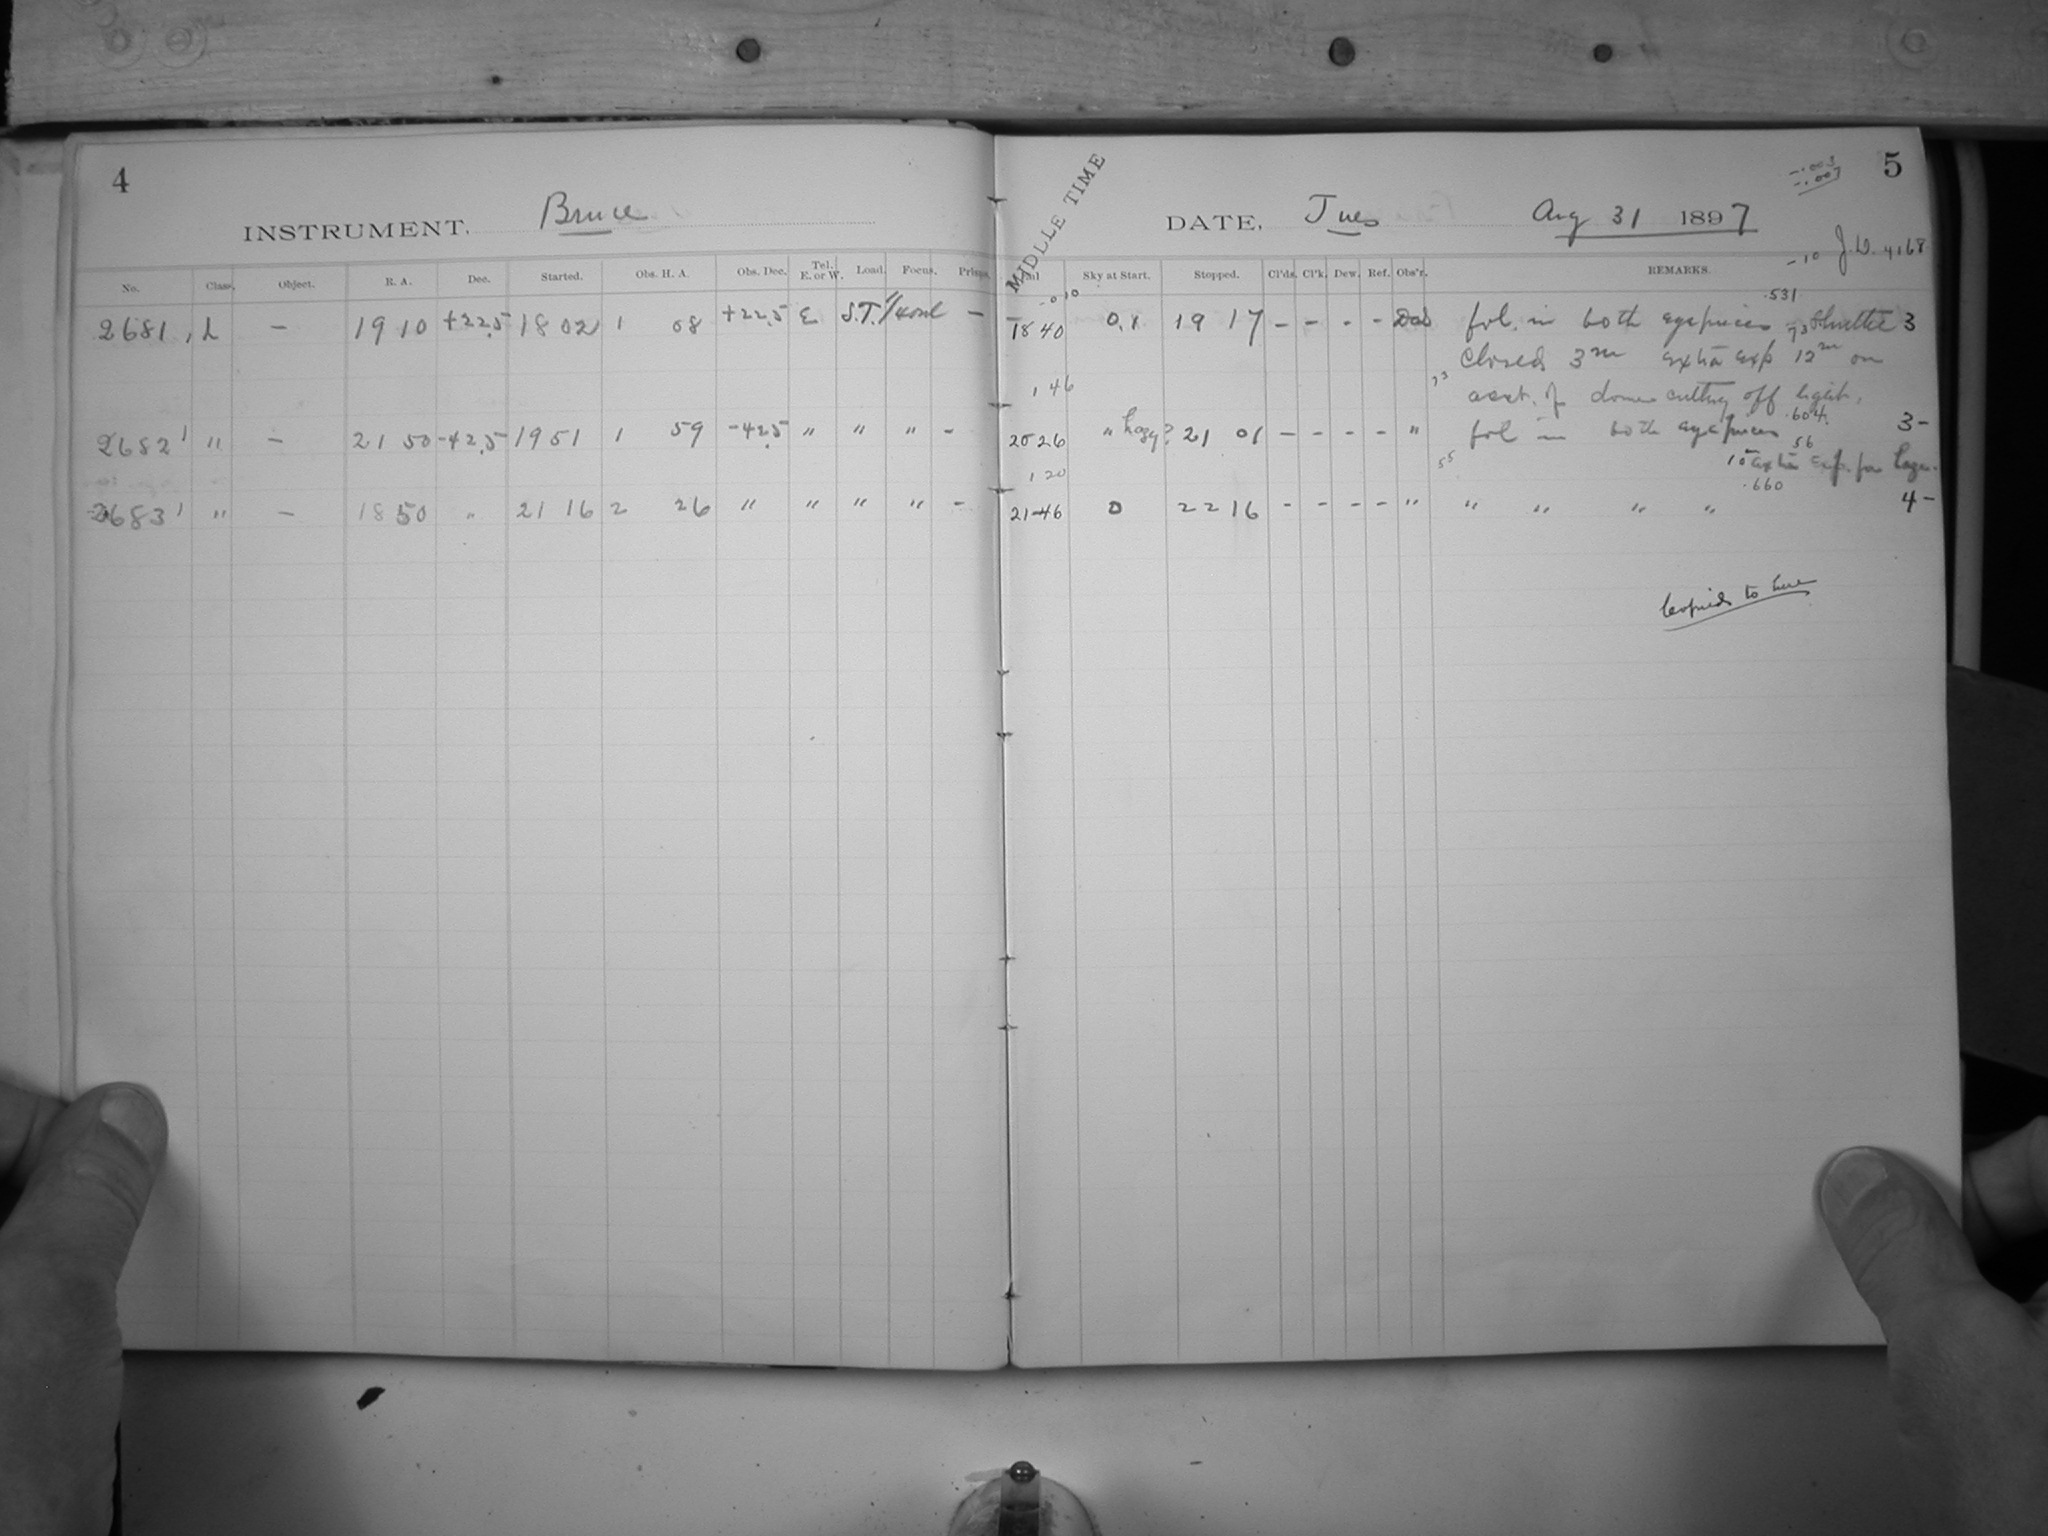 4
INSTRUMENT, Bruce
No. Class. Object. R. A. Dec. Started. Obs. H. A. Obs. Dec. Tel. E. or W. Load. Focus.
2681, L – 19 10 +22.5 18 02 1 08 +22.5 E S.T. –
2682 1 " – 21 50 -42.5 19 51 1 59 -42.5 " " " –
2683 1 " – 18 50 " 21 16 2 26 " " " " –
5
-.003
-.007
MIDLLE TIME
DATE, Tues Aug 31 1897
-10 J.D. 4168
Sky at Start. Stopped. Cl'ds. Cl'k. Dew. Ref. Obs'r. REMARKS.
-0 10 .531
18 40 0.1 19 17 – – – – fol. in both eyepieces 73 Shutter 3
closed 3m extra exp 12m on
1 46 73 acct. of dome cutting off light.
.604
20 26 " hazy? 21 01 – – – – " fol in both eyepieces 3-
56
1 20 55 10 extra exp. for haze.
.660
21 46 0 22 16 – – – – " " " " " 4-
Copied to here